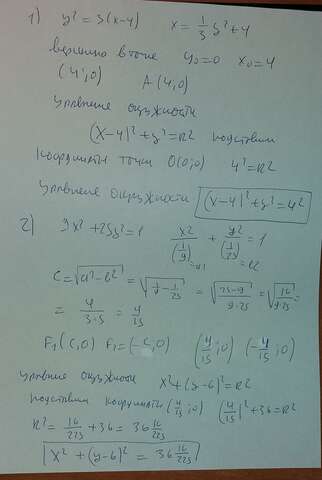 1) y² = 3(x-4)   x = 1/3 y² + 4
вершина в точке   y₀ = 0   x₀ = 4
(4;0)   A(4,0)
уравнение окружности
(x-4)² + y² = R²   подставим
координаты точки   O(0;0)   4² = R²
Уравнение окружности   (x-4)² + y² = 4²
2) 9x² + 25y² = 1   x²/(1/9) + y²/(1/25) = 1
C = √(a²-b²) = √(1/9 - 1/25) = √((25-9)/(9·25)) = √(16/(9·25)) =
= 4/(3·5) = 4/15
F₁(C,0)   F₂ = (-C,0)   (4/15;0)   (-4/15;0)
уравнение окружности   x² + (y-6)² = R²
подставим координаты (4/15;0)   (4/15)² + 36 = R²
R² = 16/225 + 36 = 36 16/225
x² + (y-6)² = 36 16/225